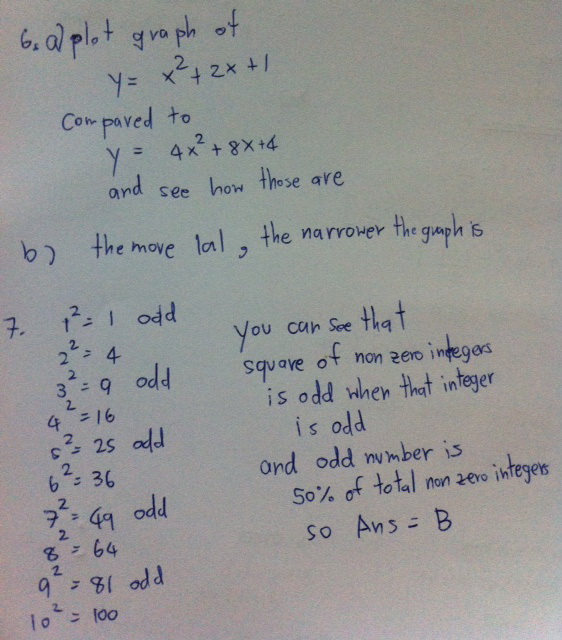 6. a) plot graph of
y = x² + 2x + 1
Compared to
y = 4x² + 8x + 4
and see how those are
b) the more |a|, the narrower the graph is
7.
1² = 1 odd
2² = 4
3² = 9 odd
4² = 16
5² = 25 odd
6² = 36
7² = 49 odd
8² = 64
9² = 81 odd
10² = 100
you can see that
square of non zero integers
is odd when that integer
is odd
and odd number is
50% of total non zero integers
so Ans = B